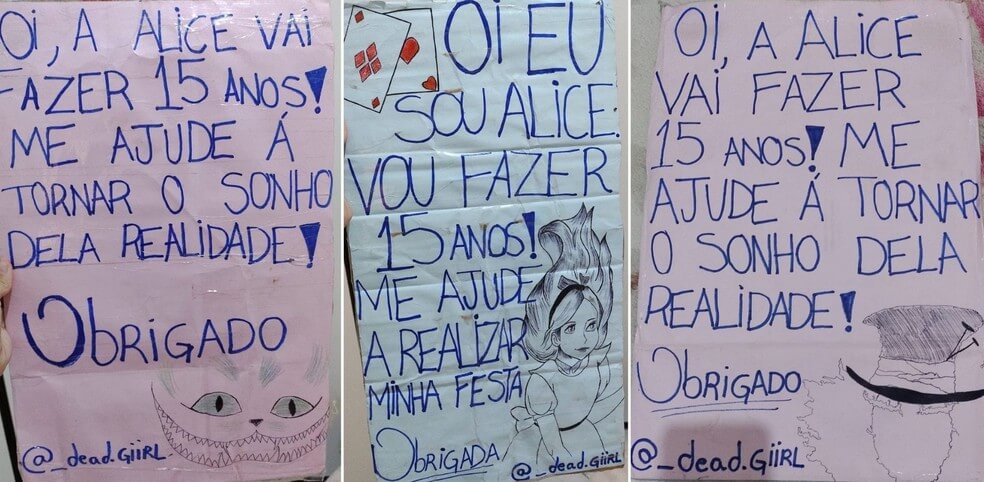 Oi, A ALICE VAI
FAZER 15 ANOS!
ME AJUDE Á
TORNAR O SONHO
DELA REALIDADE!
OBRIGADO
@_dead.GiiRL
Oi EU
SOU ALICE:
VOU FAZER
15 ANOS!
ME AJUDE
A REALIZAR
MINHA FESTA
OBRIGADA
@_dead.GiiRL
Oi, A ALICE
VAI FAZER
15 ANOS! ME
AJUDE Á TORNAR
O SONHO DELA
REALIDADE!
OBRIGADO
@_dead.GiiRL